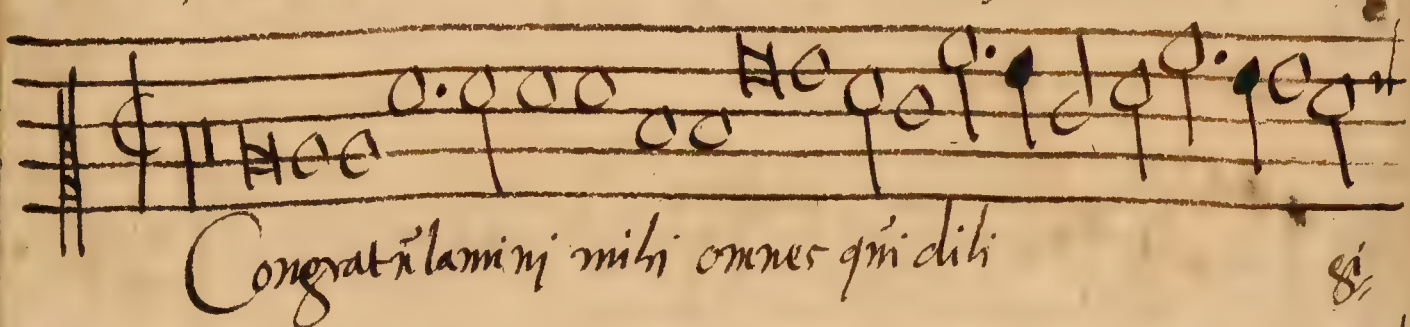 Congratulamini mihi omnes qui dili gi=